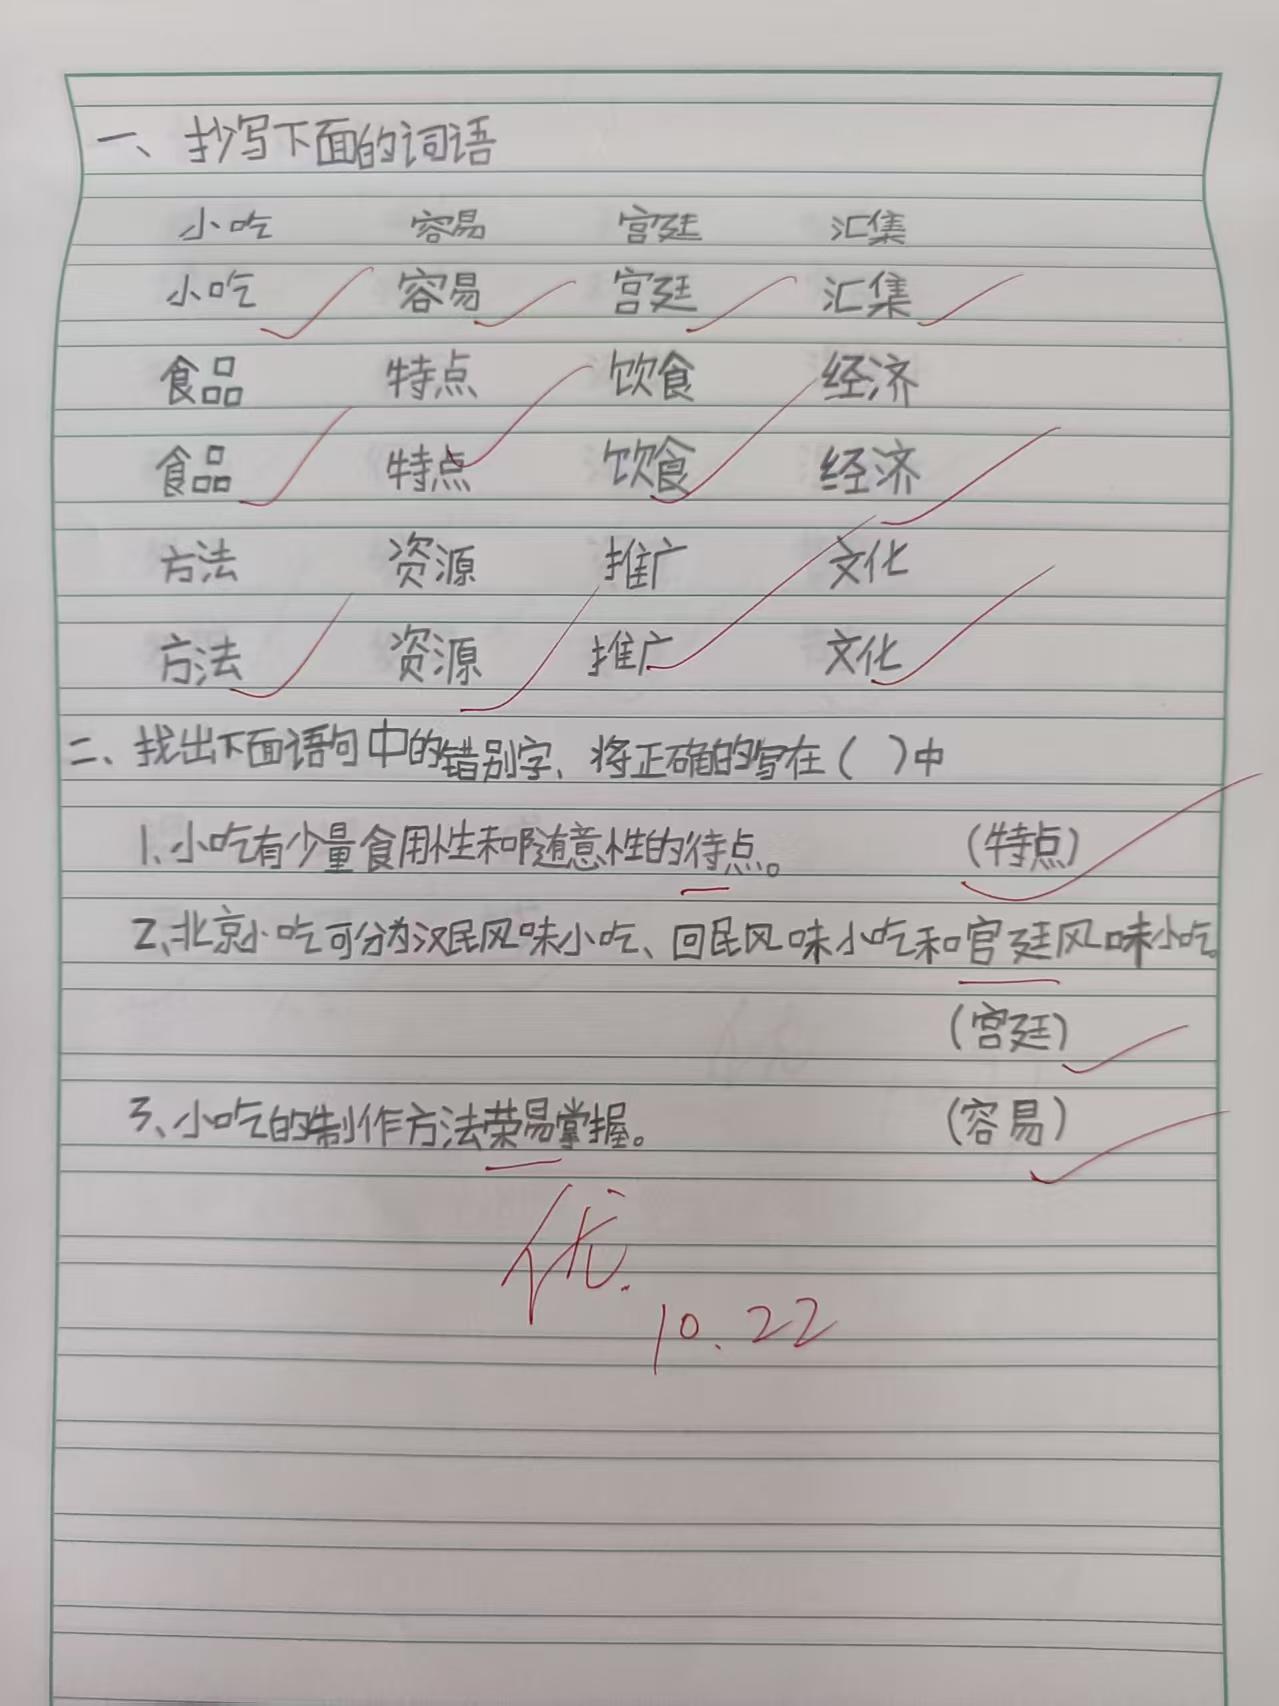 一、抄写下面的词语
小吃 容易 宫廷 汇集
小吃 容易 宫廷 汇集
食品 特点 饮食 经济
食品 特点 饮食 经济
方法 资源 推广 文化
方法 资源 推广 文化
二、找出下面语句中的错别字、将正确的写在( )中
1、小吃有少量食用性和随意性的待点。 (特点)
2、北京小吃可分为汉民风味小吃、回民风味小吃和官廷风味小吃。
(宫廷)
3、小吃的制作方法荣易掌握。 (容易)
优.
10.22